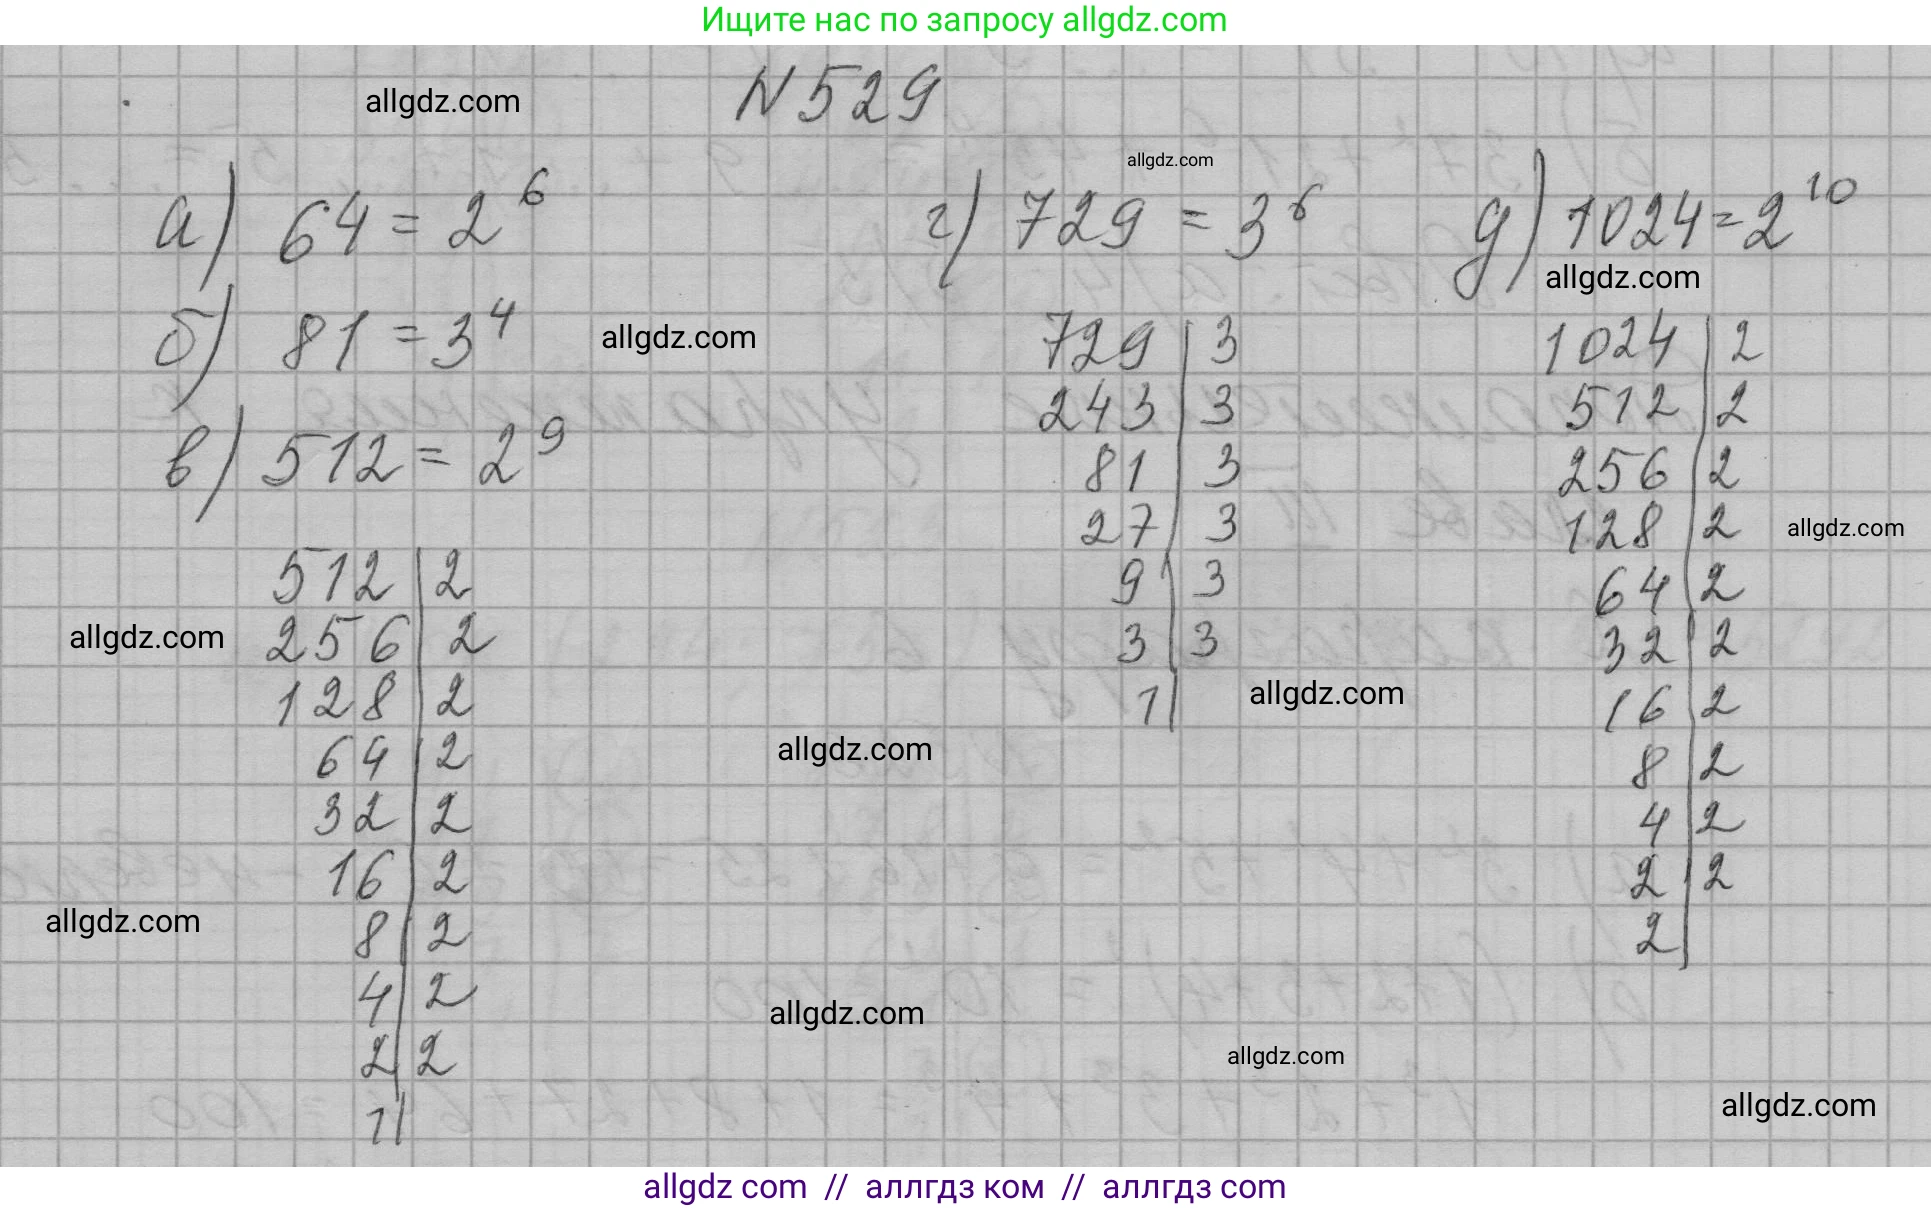 Ищите нас по запросу allgdz.com
N 529
allgdz.com
allgdz.com
а) 64 = 2^6
б) 81 = 3^4
allgdz.com
в) 512 = 2^9
512 | 2
256 | 2
128 | 2
64 | 2
32 | 2
16 | 2
8 | 2
4 | 2
2 | 2
1 |
allgdz.com
allgdz.com
г) 729 = 3^6
729 | 3
243 | 3
81 | 3
27 | 3
9 | 3
3 | 3
1 |
allgdz.com
allgdz.com
allgdz.com
allgdz.com
д) 1024 = 2^10
allgdz.com
1024 | 2
512 | 2
256 | 2
128 | 2
64 | 2
32 | 2
16 | 2
8 | 2
4 | 2
2 | 2
2 |
allgdz.com
allgdz.com
allgdz com // аллгдз ком // аллгдз com